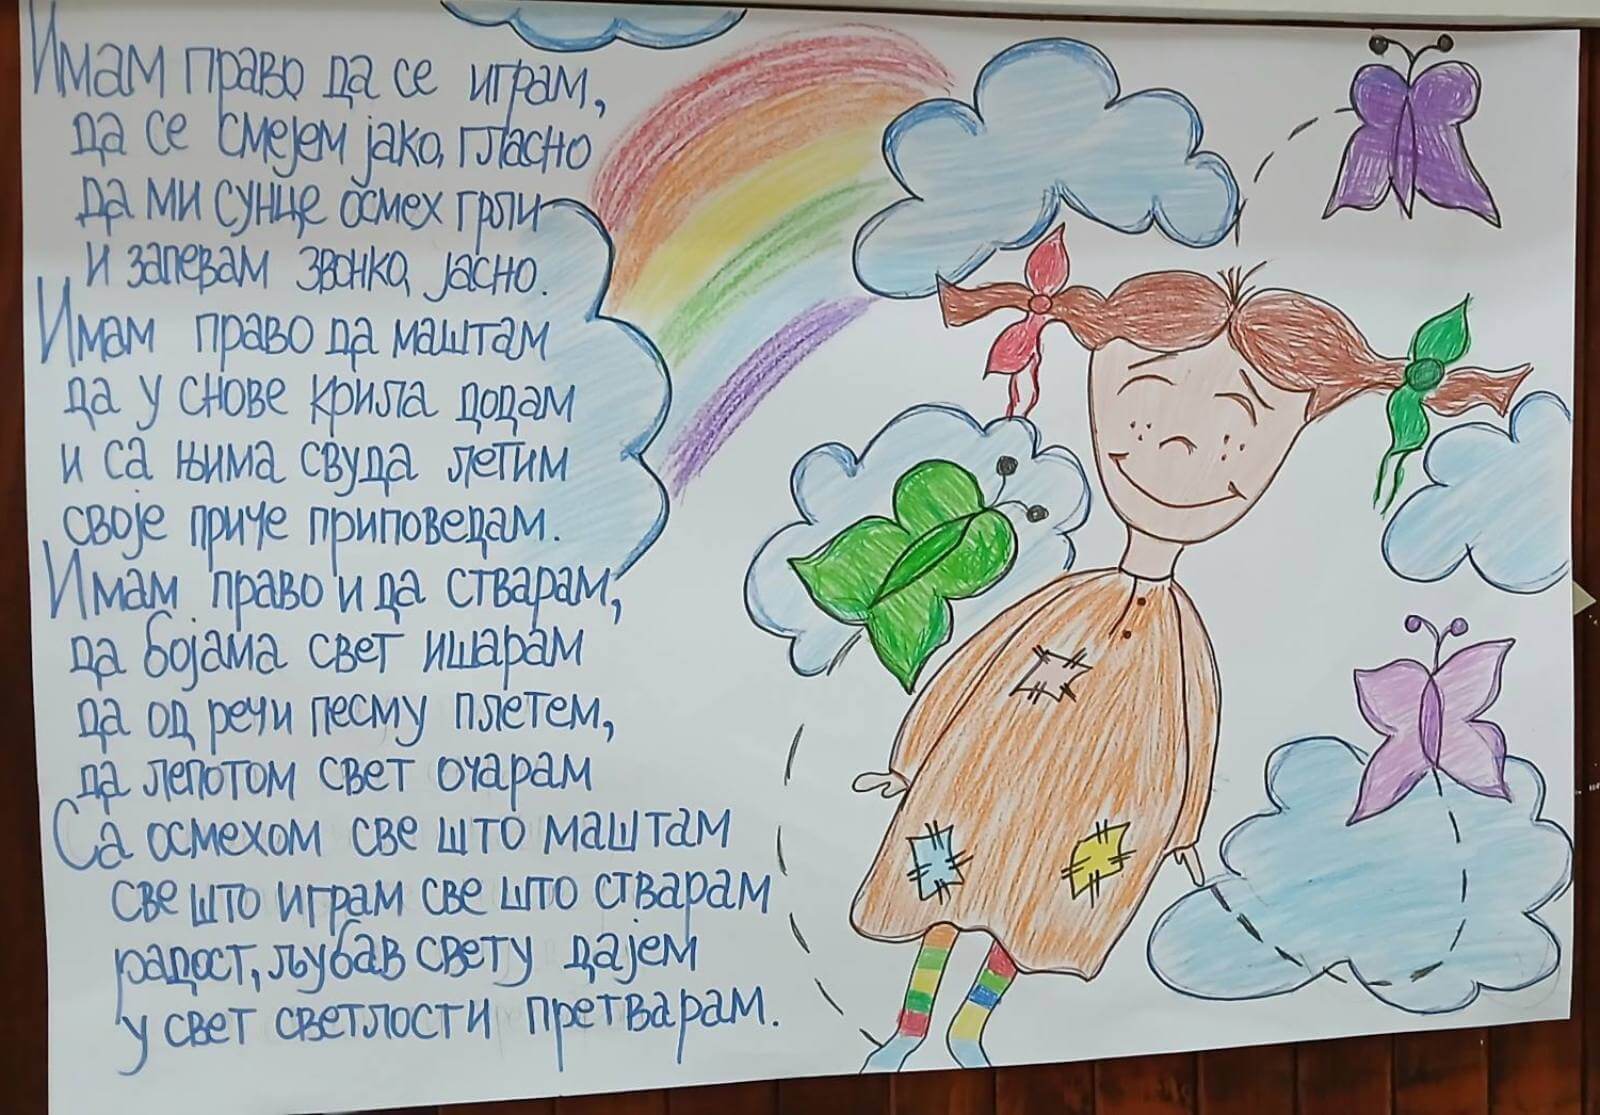 Имам право да се играм,
да се смејем јако, гласно
да ми сунце осмех грли
и запевам звонко, јасно.
Имам право да маштам
да у снове крила додам
и са њима свуда летим
своје приче приповедам.
Имам право и да стварам,
да бојама свет ишарам
да од речи песму плетем,
да лепотом свет очарам
Са осмехом све што маштам
све што играм све што стварам
радост, љубав свету дајем
у свет светлости претварам.